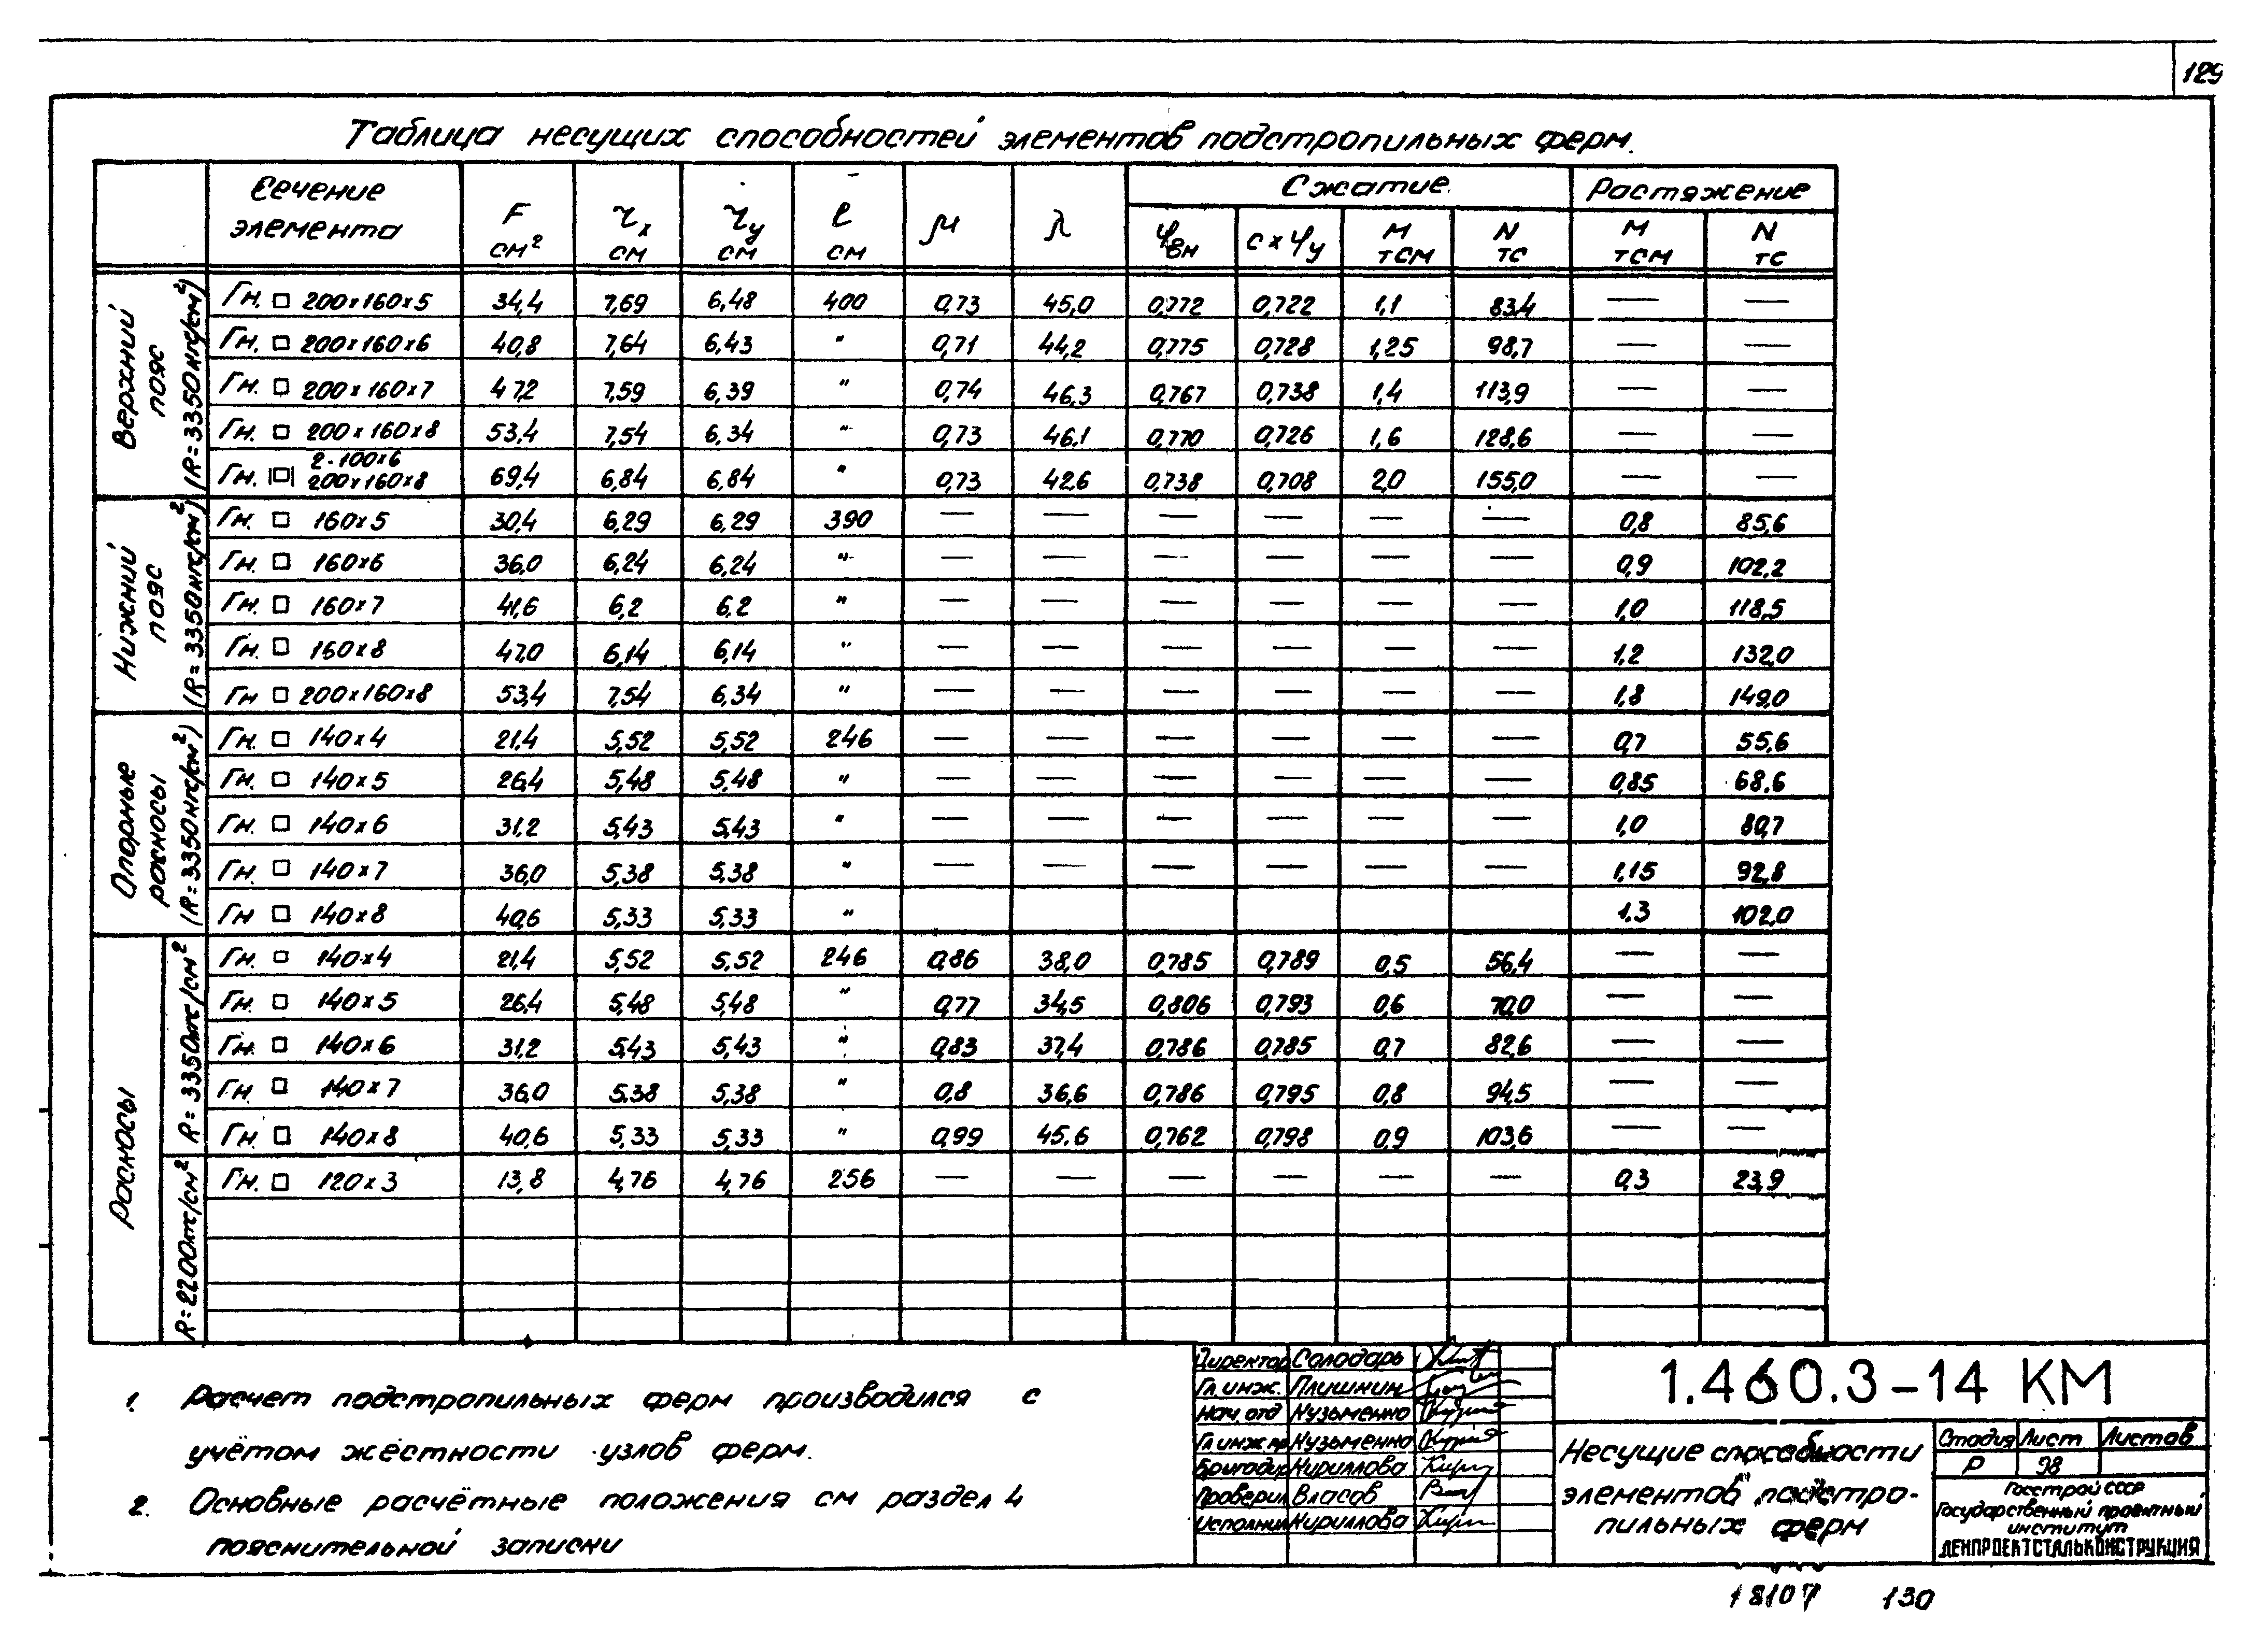 129
Таблица несущих способностей элементов подстропильных ферм.
Сечение элемента F см² rx см ry см ℓ см μ λ Сжатие. Растяжение
φвн c×φy М тсм N тс М тсм N тс
Верхний пояс (R=3350кгс/см²)
Гн. □ 200×160×5 34,4 7,69 6,48 400 0,73 45,0 0,772 0,722 1,1 83,4 — —
Гн. □ 200×160×6 40,8 7,64 6,43 " 0,71 44,2 0,775 0,728 1,25 98,7 — —
Гн. □ 200×160×7 47,2 7,59 6,39 " 0,74 46,3 0,767 0,738 1,4 113,9 — —
Гн. □ 200×160×8 53,4 7,54 6,34 " 0,73 46,1 0,770 0,726 1,6 128,6 — —
Гн. |□| 2-100×6 200×160×8 69,4 6,84 6,84 " 0,73 42,6 0,738 0,708 2,0 155,0 — —
Нижний пояс (R=3350кгс/см²)
Гн. □ 160×5 30,4 6,29 6,29 390 — — — — — — 0,8 85,6
Гн. □ 160×6 36,0 6,24 6,24 " — — — — — — 0,9 102,2
Гн. □ 160×7 41,6 6,2 6,2 " — — — — — — 1,0 118,5
Гн. □ 160×8 47,0 6,14 6,14 " — — — — — — 1,2 132,0
Гн □ 200×160×8 53,4 7,54 6,34 " — — — — — — 1,8 149,0
Опорные раскосы (R=3350кгс/см²)
Гн. □ 140×4 21,4 5,52 5,52 246 — — — — — — 0,7 55,6
Гн. □ 140×5 26,4 5,48 5,48 " — — — — — — 0,85 68,6
Гн. □ 140×6 31,2 5,43 5,43 " — — — — — — 1,0 80,7
Гн. □ 140×7 36,0 5,38 5,38 " — — — — — — 1,15 92,8
Гн □ 140×8 40,6 5,33 5,33 " 1,3 102,0
Раскосы R=3350кгс/см²
Гн. □ 140×4 21,4 5,52 5,52 246 0,86 38,0 0,785 0,789 0,5 56,4 — —
Гн. □ 140×5 26,4 5,48 5,48 " 0,77 34,5 0,806 0,793 0,6 70,0 — —
Гн. □ 140×6 31,2 5,43 5,43 " 0,83 37,4 0,786 0,785 0,7 82,6 — —
Гн □ 140×7 36,0 5,38 5,38 " 0,8 36,6 0,786 0,795 0,8 94,5 — —
Гн. □ 140×8 40,6 5,33 5,33 " 0,99 45,6 0,762 0,798 0,9 103,6 — —
R=2200кгс/см²
Гн. □ 120×3 13,8 4,76 4,76 256 — — — — — — 0,3 23,9
1. Расчет подстропильных ферм производился с
учётом жёсткости узлов ферм.
2. Основные расчётные положения см раздел 4
пояснительной записки
Директор Солодарь
Гл.инж. Плишкин
Нач.отд Кузьменко
Гл инж пр Кузьменко
Бригадир Кириллова
Проверил Власов
Исполнил Кириллова
1.460.3-14 КМ
Несущие способности
элементов подстро-
пильных ферм
Стадия Лист Листов
Р 98
Госстрой СССР
Государственный проектный
институт
ЛЕНПРОЕКТСТАЛЬКОНСТРУКЦИЯ
18107 130